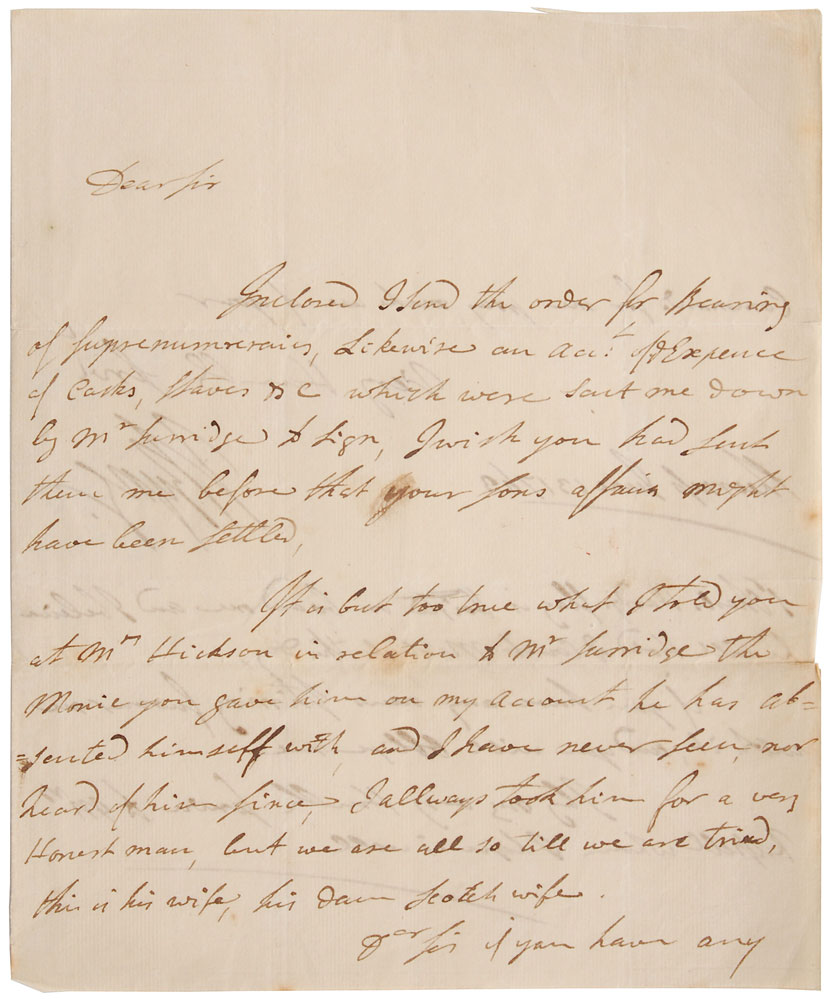 Dear Sir
Inclosed I send the order for Bearing
of Suprenumreraies, Likewise an Acct. of ye Expence
of Casks, Staves &c which were sent me down
by Mr Surridge to sign, I wish you had sent
them me before that your sons affairs might
have been settled,
It is but too true what I told you
at Mrs Hickson in relation to Mr Surridge the
Monie you gave him on my account he has ab=
=sented himself with, and I have never seen, nor
heard of him since, I allways took him for a very
Honest man, but we are all so till we are tried,
this is his wife, his damn Scotch wife.
Dear Sir if you have any